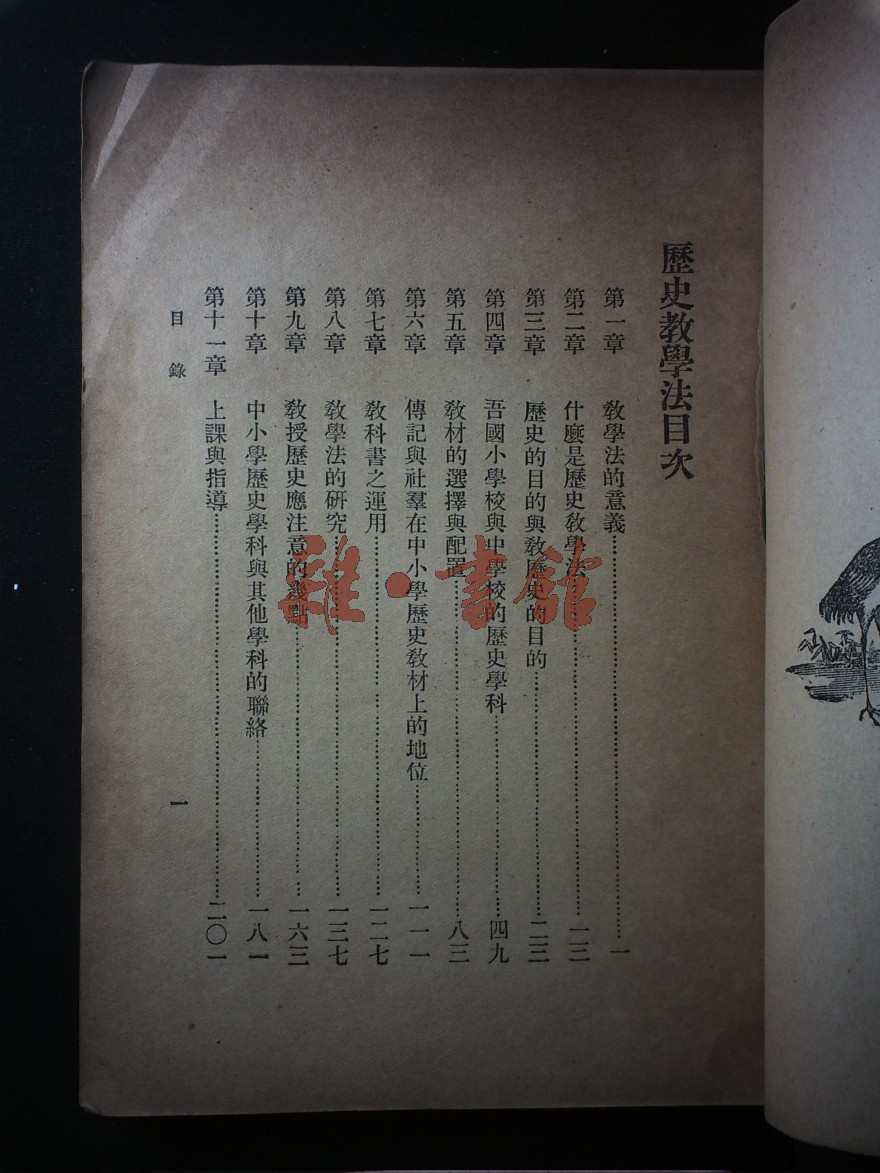 歷史教學法目次
第一章 教學法的意義……一
第二章 什麼是歷史教學法……一三
第三章 歷史的目的與教歷史的目的……二三
第四章 吾國小學校與中學校的歷史學科……四九
第五章 教材的選擇與配置……八三
第六章 傳記與社羣在中小學歷史教材上的地位……一一一
第七章 教科書之運用……一二七
第八章 教學法的研究……一三七
第九章 教授歷史應注意的幾點……一六三
第十章 中小學歷史學科與其他學科的聯絡……一八一
第十一章 上課與指導……二〇一
目錄 一
雜·書館